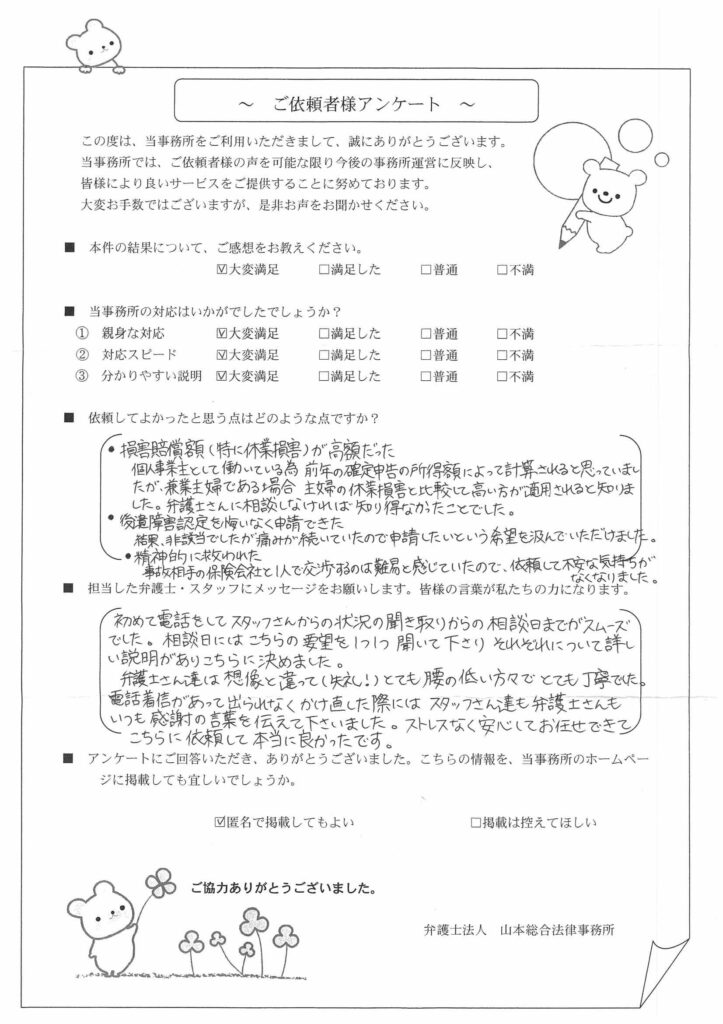 ～ ご依頼者様アンケート ～
この度は、当事務所をご利用いただきまして、誠にありがとうございます。
当事務所では、ご依頼者様の声を可能な限り今後の事務所運営に反映し、
皆様により良いサービスをご提供することに努めております。
大変お手数ではございますが、是非お声をお聞かせください。
■ 本件の結果について、ご感想をお教えください。
☑大変満足 □満足した □普通 □不満
■ 当事務所の対応はいかがでしたでしょうか？
① 親身な対応 ☑大変満足 □満足した □普通 □不満
② 対応スピード ☑大変満足 □満足した □普通 □不満
③ 分かりやすい説明 ☑大変満足 □満足した □普通 □不満
■ 依頼してよかったと思う点はどのような点ですか？
・損害賠償額（特に休業損害）が高額だった
個人事業主として働いている為 前年の確定申告の所得額によって計算されると思っていまし
たが、兼業主婦である場合 主婦の休業損害と比較して高い方が適用されると知りま
した。弁護士さんに相談しなければ知り得なかったことでした。
・後遺障害認定を悔いなく申請できた
結果、非該当でしたが痛みが続いていたので申請したいという希望を汲んでいただけました。
・精神的に救われた
事故相手の保険会社と1人で交渉するのは難易と感じていたので、依頼して不安な気持ちが
なくなりました。
■ 担当した弁護士・スタッフにメッセージをお願いします。皆様の言葉が私たちの力になります。
初めて電話をしてスタッフさんからの状況の聞き取りからの相談日までがスムーズ
でした。相談日にはこちらの要望を1つ1つ聞いて下さりそれぞれについて詳し
い説明がありこちらに決めました。
弁護士さん達は想像と違って（失礼！）とても腰の低い方々でとても丁寧でした。
電話着信があって出られなくかけ直した際にはスタッフさん達も弁護士さんも
いつも感謝の言葉を伝えて下さいました。ストレスなく安心してお任せできて
こちらに依頼して本当に良かったです。
■ アンケートにご回答いただき、ありがとうございました。こちらの情報を、当事務所のホームペー
ジに掲載しても宜しいでしょうか。
☑匿名で掲載してもよい □掲載は控えてほしい
ご協力ありがとうございました。
弁護士法人 山本総合法律事務所